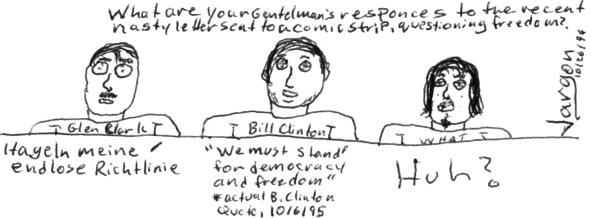 What are your Gentelman's responces to the recent
nasty letter sent to a comic strip, questioning freedom?
Glen Clark
Bill Clinton
WHAT
Hageln meine
endlose Richtlinie
"We must stand
for democracy
and freedom"
*actual B. Clinton
Quote, 10/6/95
Huh?
Jargon
10/20/96